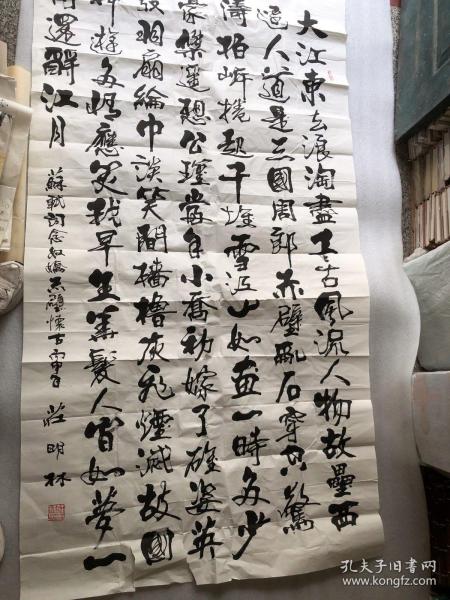 大江東去浪淘盡千古風流人物故壘西
邊人道是三國周郎赤壁亂石穿空驚
濤拍岸捲起千堆雪江山如畫一時多少
豪傑遥想公瑾當年小喬初嫁了雄姿英
發羽扇綸巾談笑間檣櫓灰飛煙滅故國
神遊多情應笑我早生華髮人間如夢一
還酹江月
蘇軾詞念奴嬌赤壁懷古
莊明林
孔夫子旧书网
www.kongfz.com